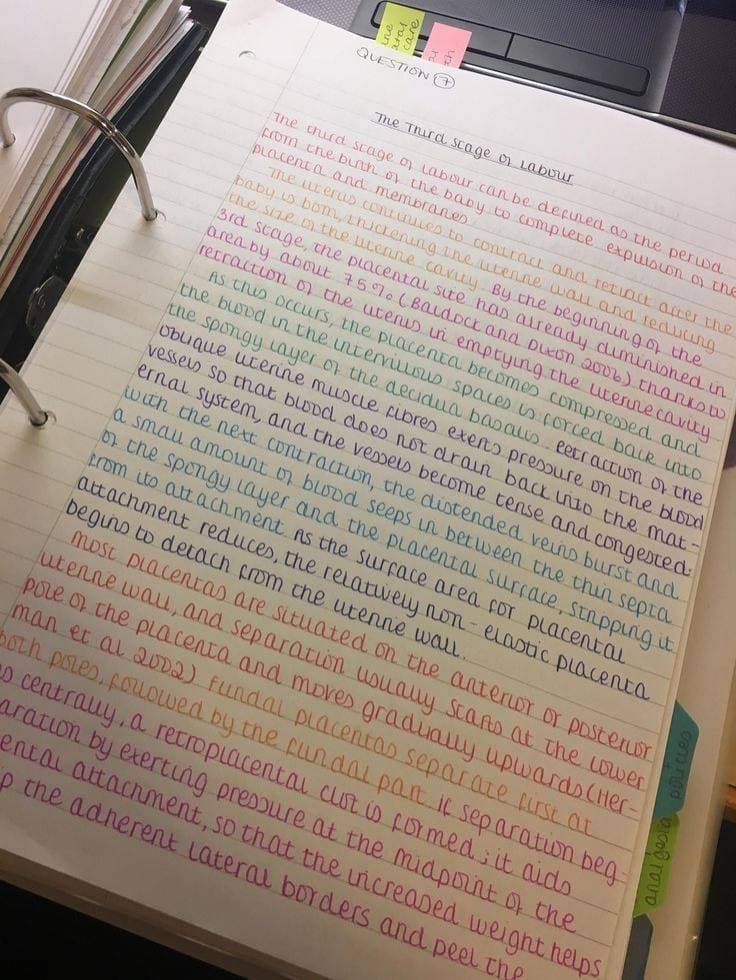 QUESTION 7
The Third Stage of Labour
The third stage of labour can be defined as the period
from the birth of the baby to complete expulsion of the
placenta and membranes.
The uterus continues to contract and retract after the
baby is born, thickening the uterine wall and reducing
the size of the uterine cavity. By the beginning of the
3rd stage, the placental site has already diminished in
area by about 75% (Baldock and Dixon 2006) thanks to
retraction of the uterus in emptying the uterine cavity
As this occurs, the placenta becomes compressed and
the blood in the intervillous spaces is forced back into
the spongy layer of the decidua basalis. Retraction of the
oblique uterine muscle fibres exerts pressure on the blood
vessels so that blood does not drain back into the mat-
ernal system, and the vessels become tense and congested.
With the next contraction, the distended veins burst and
a small amount of blood seeps in between the thin septa
of the spongy layer and the placental surface, stripping it
from its attachment. As the surface area for placental
attachment reduces, the relatively non-elastic placenta
begins to detach from the uterine wall.
Most placentas are situated on the anterior or posterior
uterine wall, and separation usually starts at the lower
pole of the placenta and moves gradually upwards (Her-
man et al 2002) Fundal placentas separate first at
both poles, followed by the fundal part. If separation beg-
s centrally, a retroplacental clot is formed; it aids
aration by exerting pressure at the midpoint of the
ental attachment, so that the increased weight helps
p the adherent lateral borders and peel the
analgesia
policies